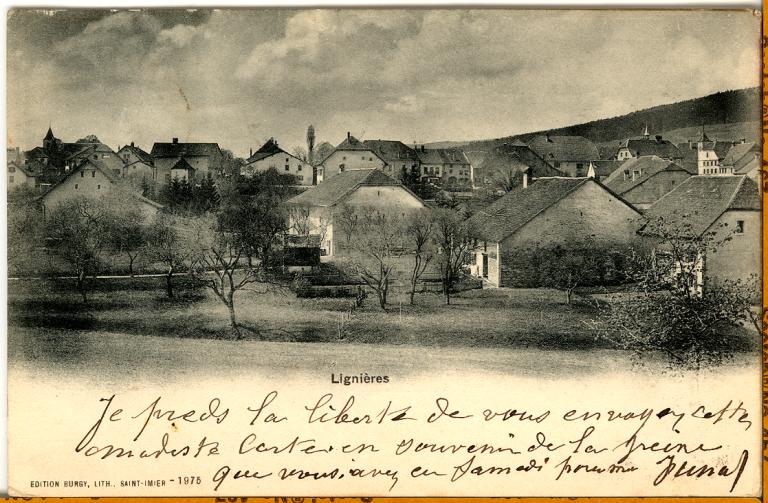 Lignières
Je preds la liberté de vous envoyer cette
modeste Carte en souvenir de la peine
que vous avez eu Samedi pour ma
EDITION BURGY, LITH., SAINT-IMIER - 1975